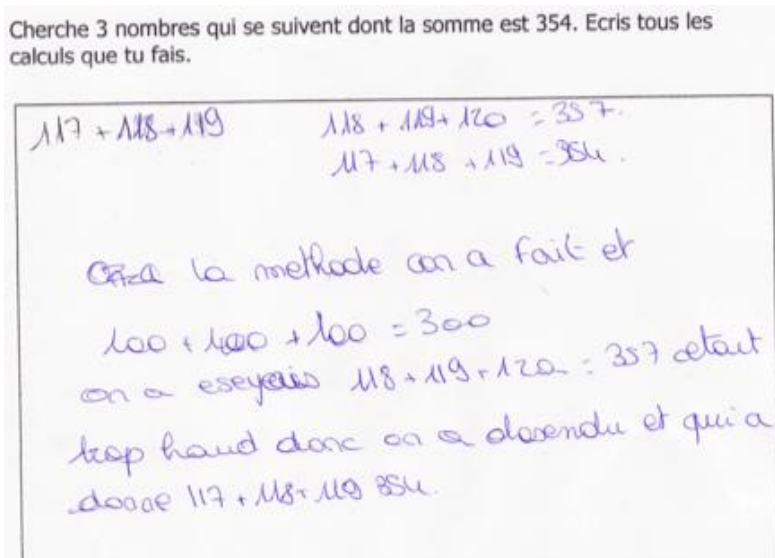 Cherche 3 nombres qui se suivent dont la somme est 354. Ecris tous les
calculs que tu fais.
117 + 118 + 119
118 + 119 + 120 = 357.
117 + 118 + 119 = 354.
la methode on a fait et
100 + 100 + 100 = 300
on a eseyais 118 + 119 + 120 = 357 cetait
trop haud donc on a desendu et qui a
donne 117 + 118 + 119 354.